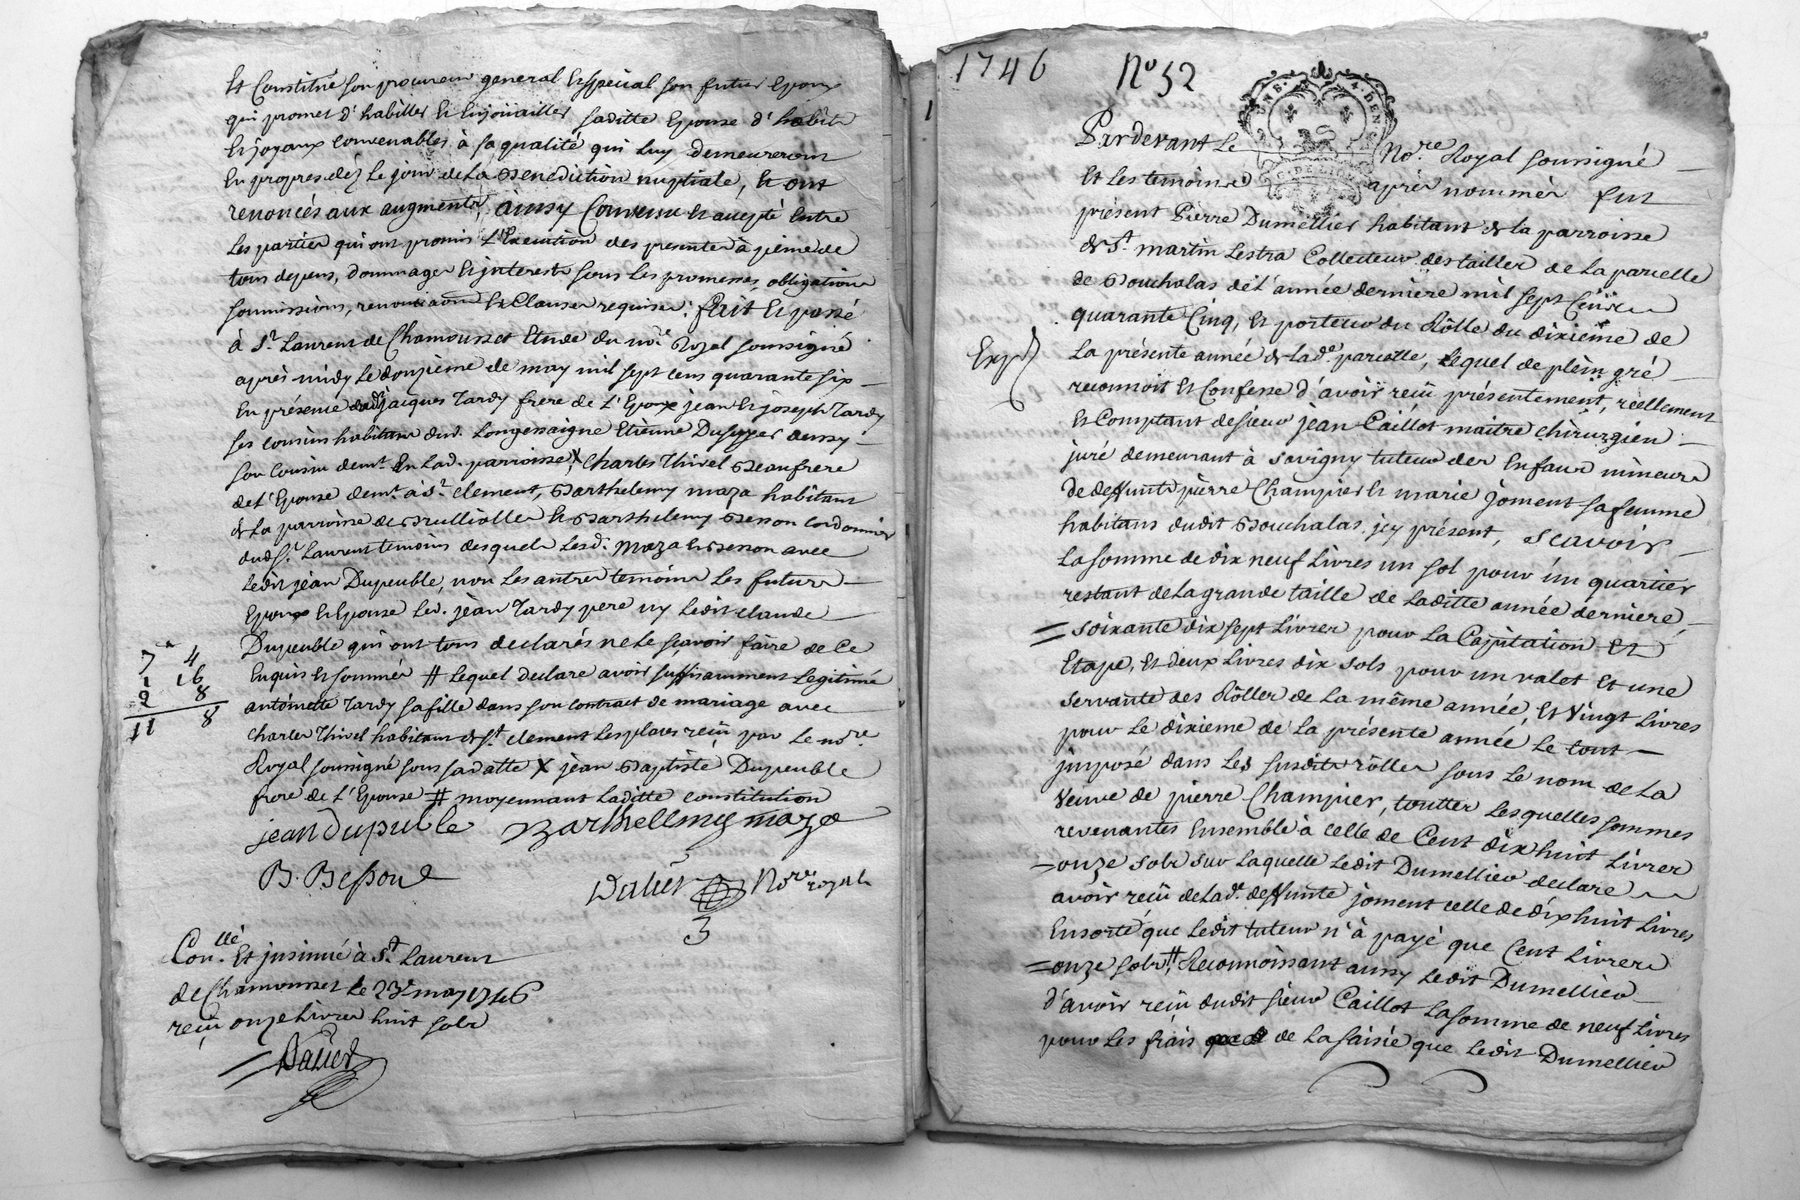 Et Constitué son procureur general Et special son futur Epoux
qui promet d'habiller Et Enjoüailler saditte Epouse d'habits
Et joyaux convenables à sa qualité qui luy demeureront
En propres dez le jour de la Benediction nuptiale, Et ont
renoncés aux augments, aussy Convenu Et accepté Entre
Les parties qui ont promis L'Execution des presentes à peine de
tous depens, dommages Et interests sous les promesses, obligations
soumissions, renonciations Et Clauses requises. fait Et passé
à St. Laurent de Chamousset Etude du nore. Royal soussigné
après midy le douzieme de may mil sept cens quarante six
En présence dudt. jacques Tardy frere de L'Epoux jean Et joseph Tardy
ses cousins habitans dud. Longessaigne Etienne Dusuzger aussy
son cousin demt. En Lad. parroisse, X Charles Thivel Beaufrere
de L'Epouse demt. à St. clement, Barthelemy maza habitant
de La parroisse de Brulliolles Et Barthelemy Besson cordonnier
dud St. Laurent temoins desquels Lesd. Maza Et Besson avec
ledit jean Dupeuble, non les autres temoins Les futurs
Epoux Et Epouse led. jean Tardy pere ny ledit claude
Dupeuble qui ont tous declarés ne le sçavoir faire de Ce
Enquis Et sommés # lequel declare avoir suffisamment Legitimé
antoinette Tardy sa fille dans son contract de mariage avec
charles Thivel habitant de St. clement Lesplaces reçu par Le nore.
Royal soussigné sous sa datte X jean Baptiste Dupeuble
frere de L'Epouse # moyennant Laditte constitution
7 4
1 16
2 8
11 8
jean dupuble Barthellmy maza
B. Besson Daller Nore royal
Conllé. Et insinué à St. Laurent
de Chamousset le 23e may 1746
reçu onze livres huit sols
1746 No 52
Pardevant Le Nore. Royal soussigné
Et les temoins après nommés fut
présent Pierre Dumellier habitant de la parroisse
de St. martin Lestra Collecteur des tailles de La parcelle
de Bouchalas de L'année derniere mil sept Cens
quarante Cinq, Et porteur du Rôlle du dixième de
La présente année de lade. parcelle, Lequel de plein gré
Exp.
reconnoit Et Confesse d'avoir reçû présentement, réellement
Et Comptant de sieur jean Caillot maitre chirurgien
juré demeurant à savigny tuteur des Enfans mineurs
de deffunts pierre Champier Et marie joment sa femme
habitans dudit Bouchalas, jcy présent, scavoir
La somme de dix neuf livres un sol pour un quartier
restant de la grande taille de laditte année derniere
soixante dix sept Livres pour La Capitation Et
Etape, Et deux livres dix sols pour un valet Et une
servante des Rôlles de La même année, Et Vingt Livres
pour Le dixieme de La présente année Le tout
jmposé dans Les susdits rôlles sous Le nom de La
Veuve de pierre Champier, touttes lesquelles sommes
revenantes Ensemble à celle de Cent dix huit Livres
onze sols sur laquelle ledit Dumellier declare
avoir reçû de Lade. deffunte joment celle de dix huit Livres
Ensorte que ledit tuteur n'à payé que Cent livres
onze sols # Reconnoissant aussy ledit Dumellier
d'avoir reçû dudit sieur Caillot La somme de neuf Livres
pour Les frais de La saisie que ledit Dumellier